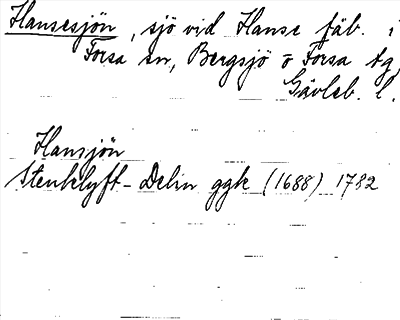 Hansesjön, sjö vid Hanse fäb. i
Forsa sn, Bergsjö o Forsa tg,
Gävleb. l.
Hansjön
Stenklyft-Delin ggk (1688) 1782